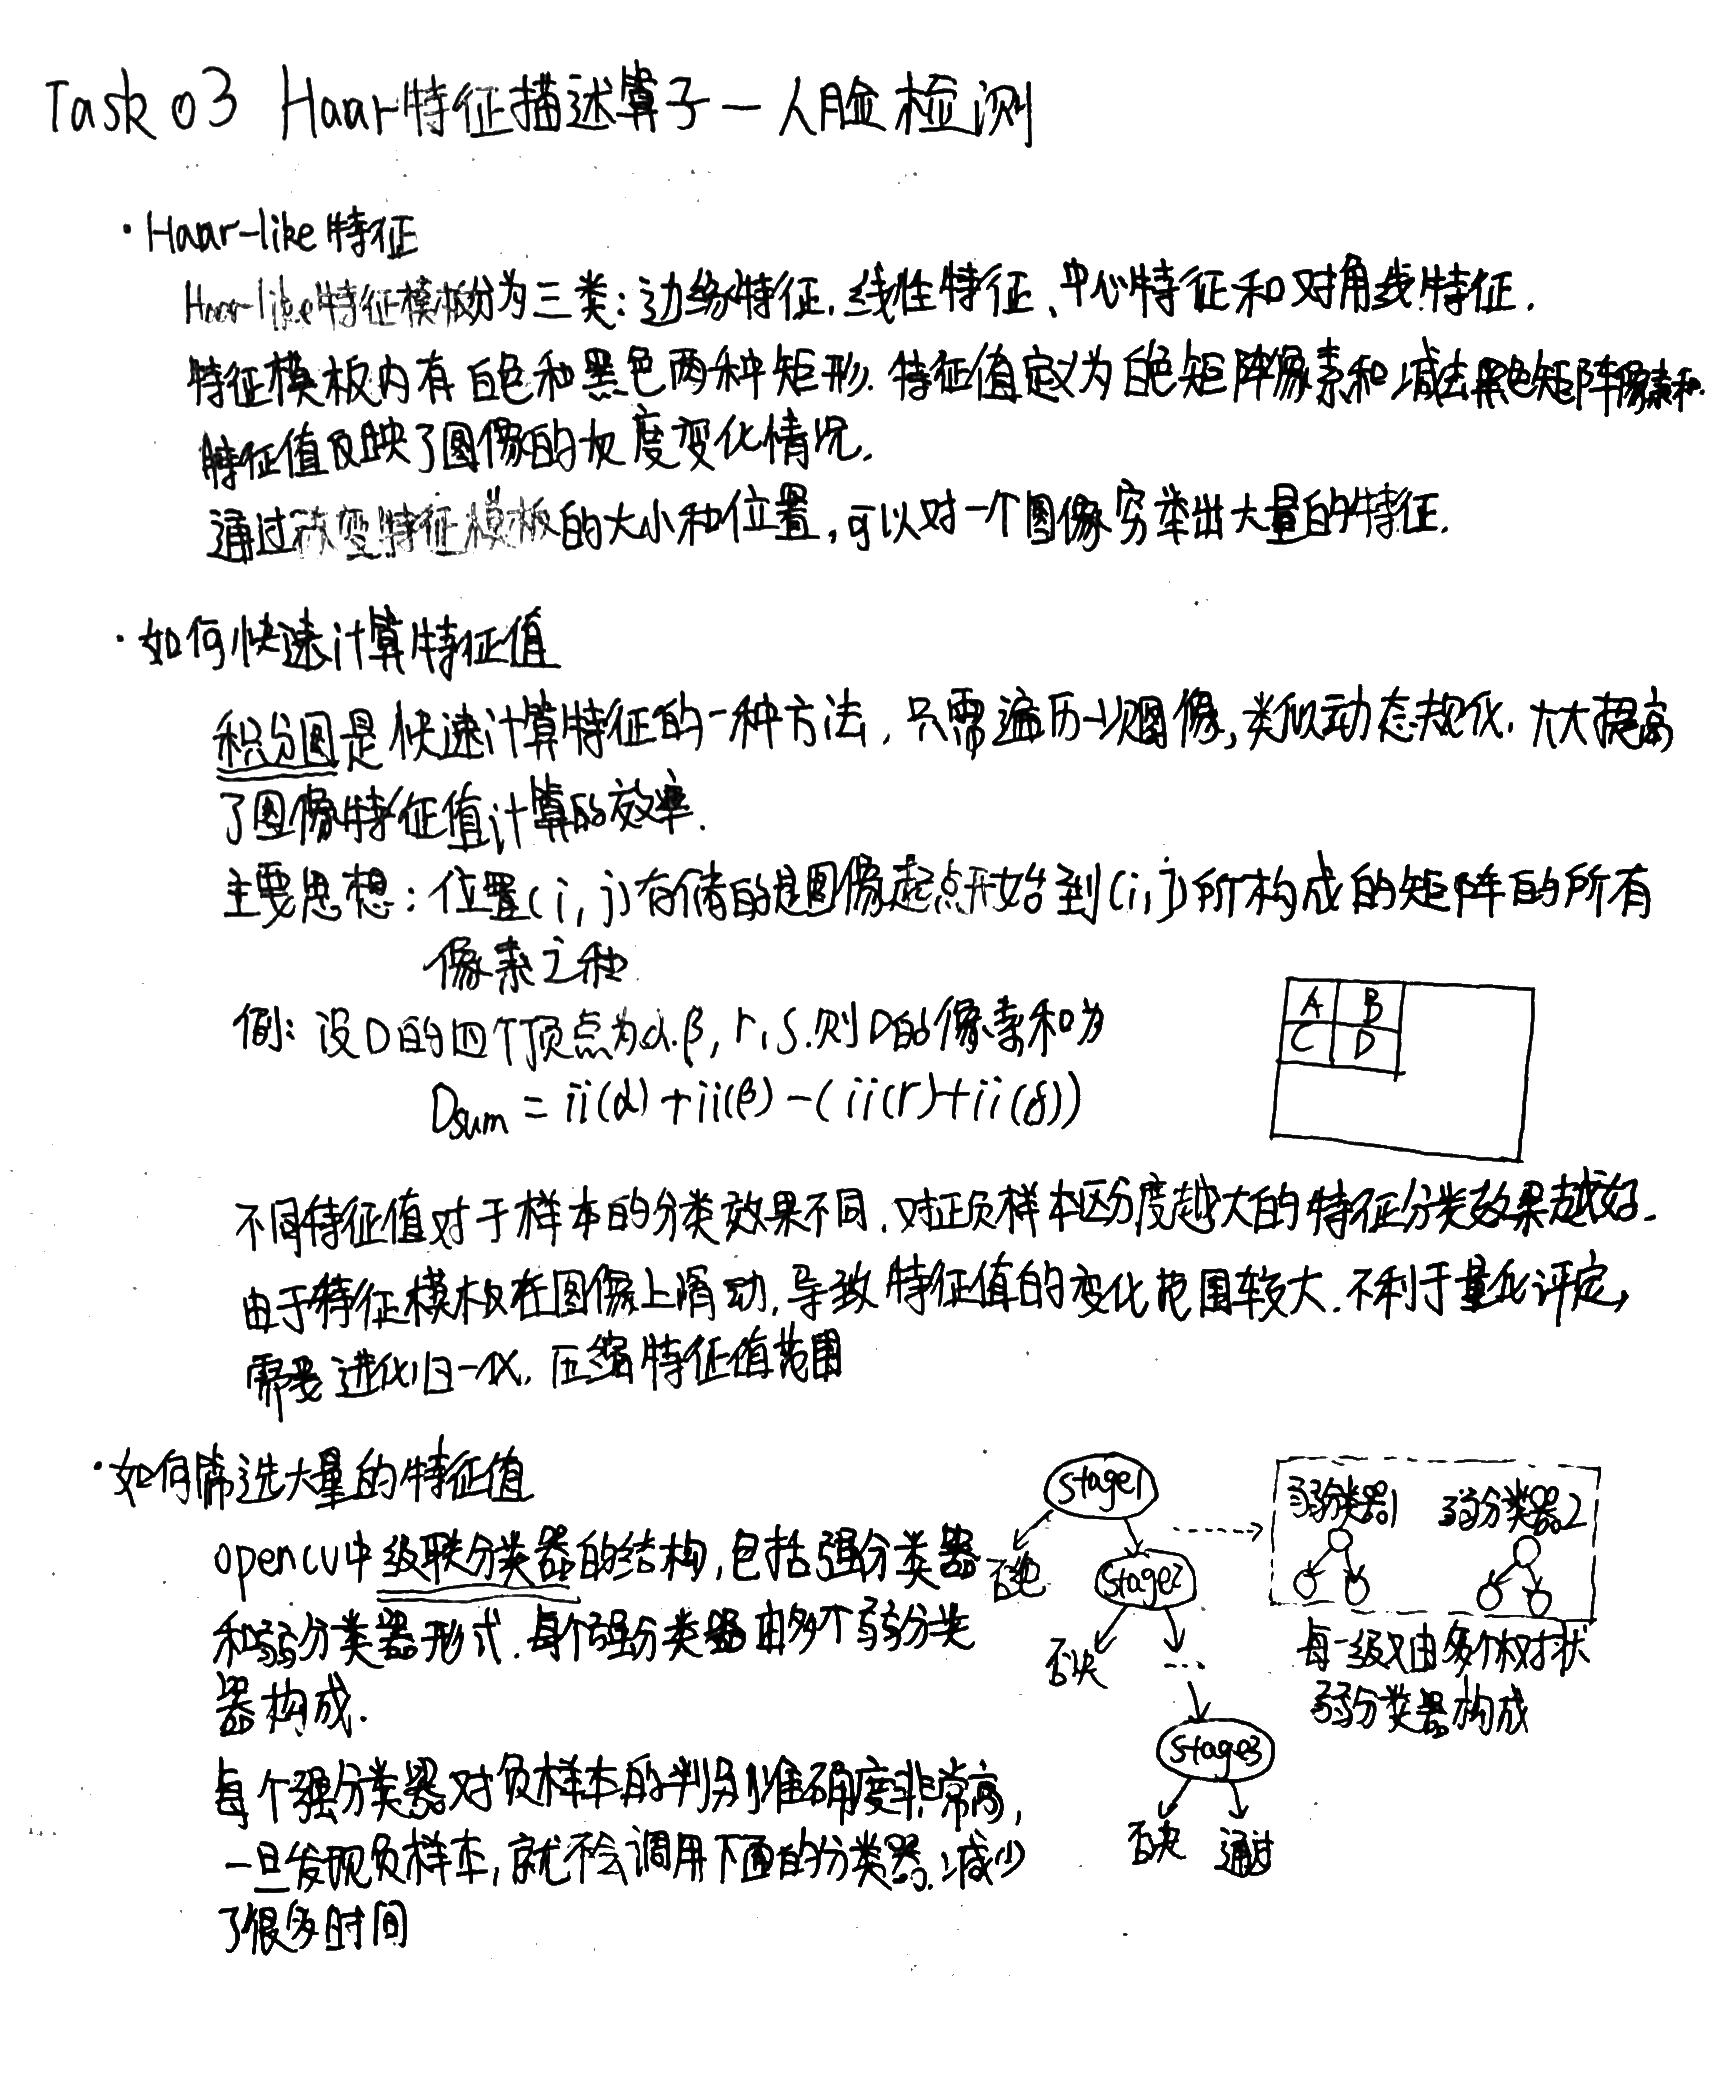 Task 03 Haar特征描述算子—人脸检测
·Haar-like特征
Haar-like特征模板分为三类:边缘特征,线性特征、中心特征和对角线特征.
特征模板内有白色和黑色两种矩形.特征值定义为白色矩阵像素和减去黑色矩阵像素和.
特征值反映了图像的灰度变化情况.
通过改变特征模板的大小和位置,可以对一个图像穷举出大量的特征.
·如何快速计算特征值
积分图是快速计算特征的一种方法,只需遍历一次图像,类似动态规化,大大提高
了图像特征值计算的效率.
主要思想:位置(i,j)存储的是图像起点开始到(i,j)所构成的矩阵的所有
像素之和
例:设D的四个顶点为α.β,r,δ.则D的像素和为
Dsum = ii(α)+ii(β)-(ii(r)+ii(δ))
A B
C D
不同特征值对于样本的分类效果不同.对正负样本区分度越大的特征分类效果越好.
由于特征模板在图像上滑动,导致特征值的变化范围较大.不利于量化评定,
需要进化归一化,压缩特征值范围
·如何筛选大量的特征值
opencv中级联分类器的结构,包括强分类器
和弱分类器形式.每个强分类器由多个弱分类
器构成.
每个强分类器对负样本的判别准确度非常高,
一旦发现负样本,就不会调用下面的分类器.减少
了很多时间
stage1
否决
stage2
否决
...
stage3
否决 通过
弱分类器1 弱分类器2
每一级又由多个树状
弱分类器构成